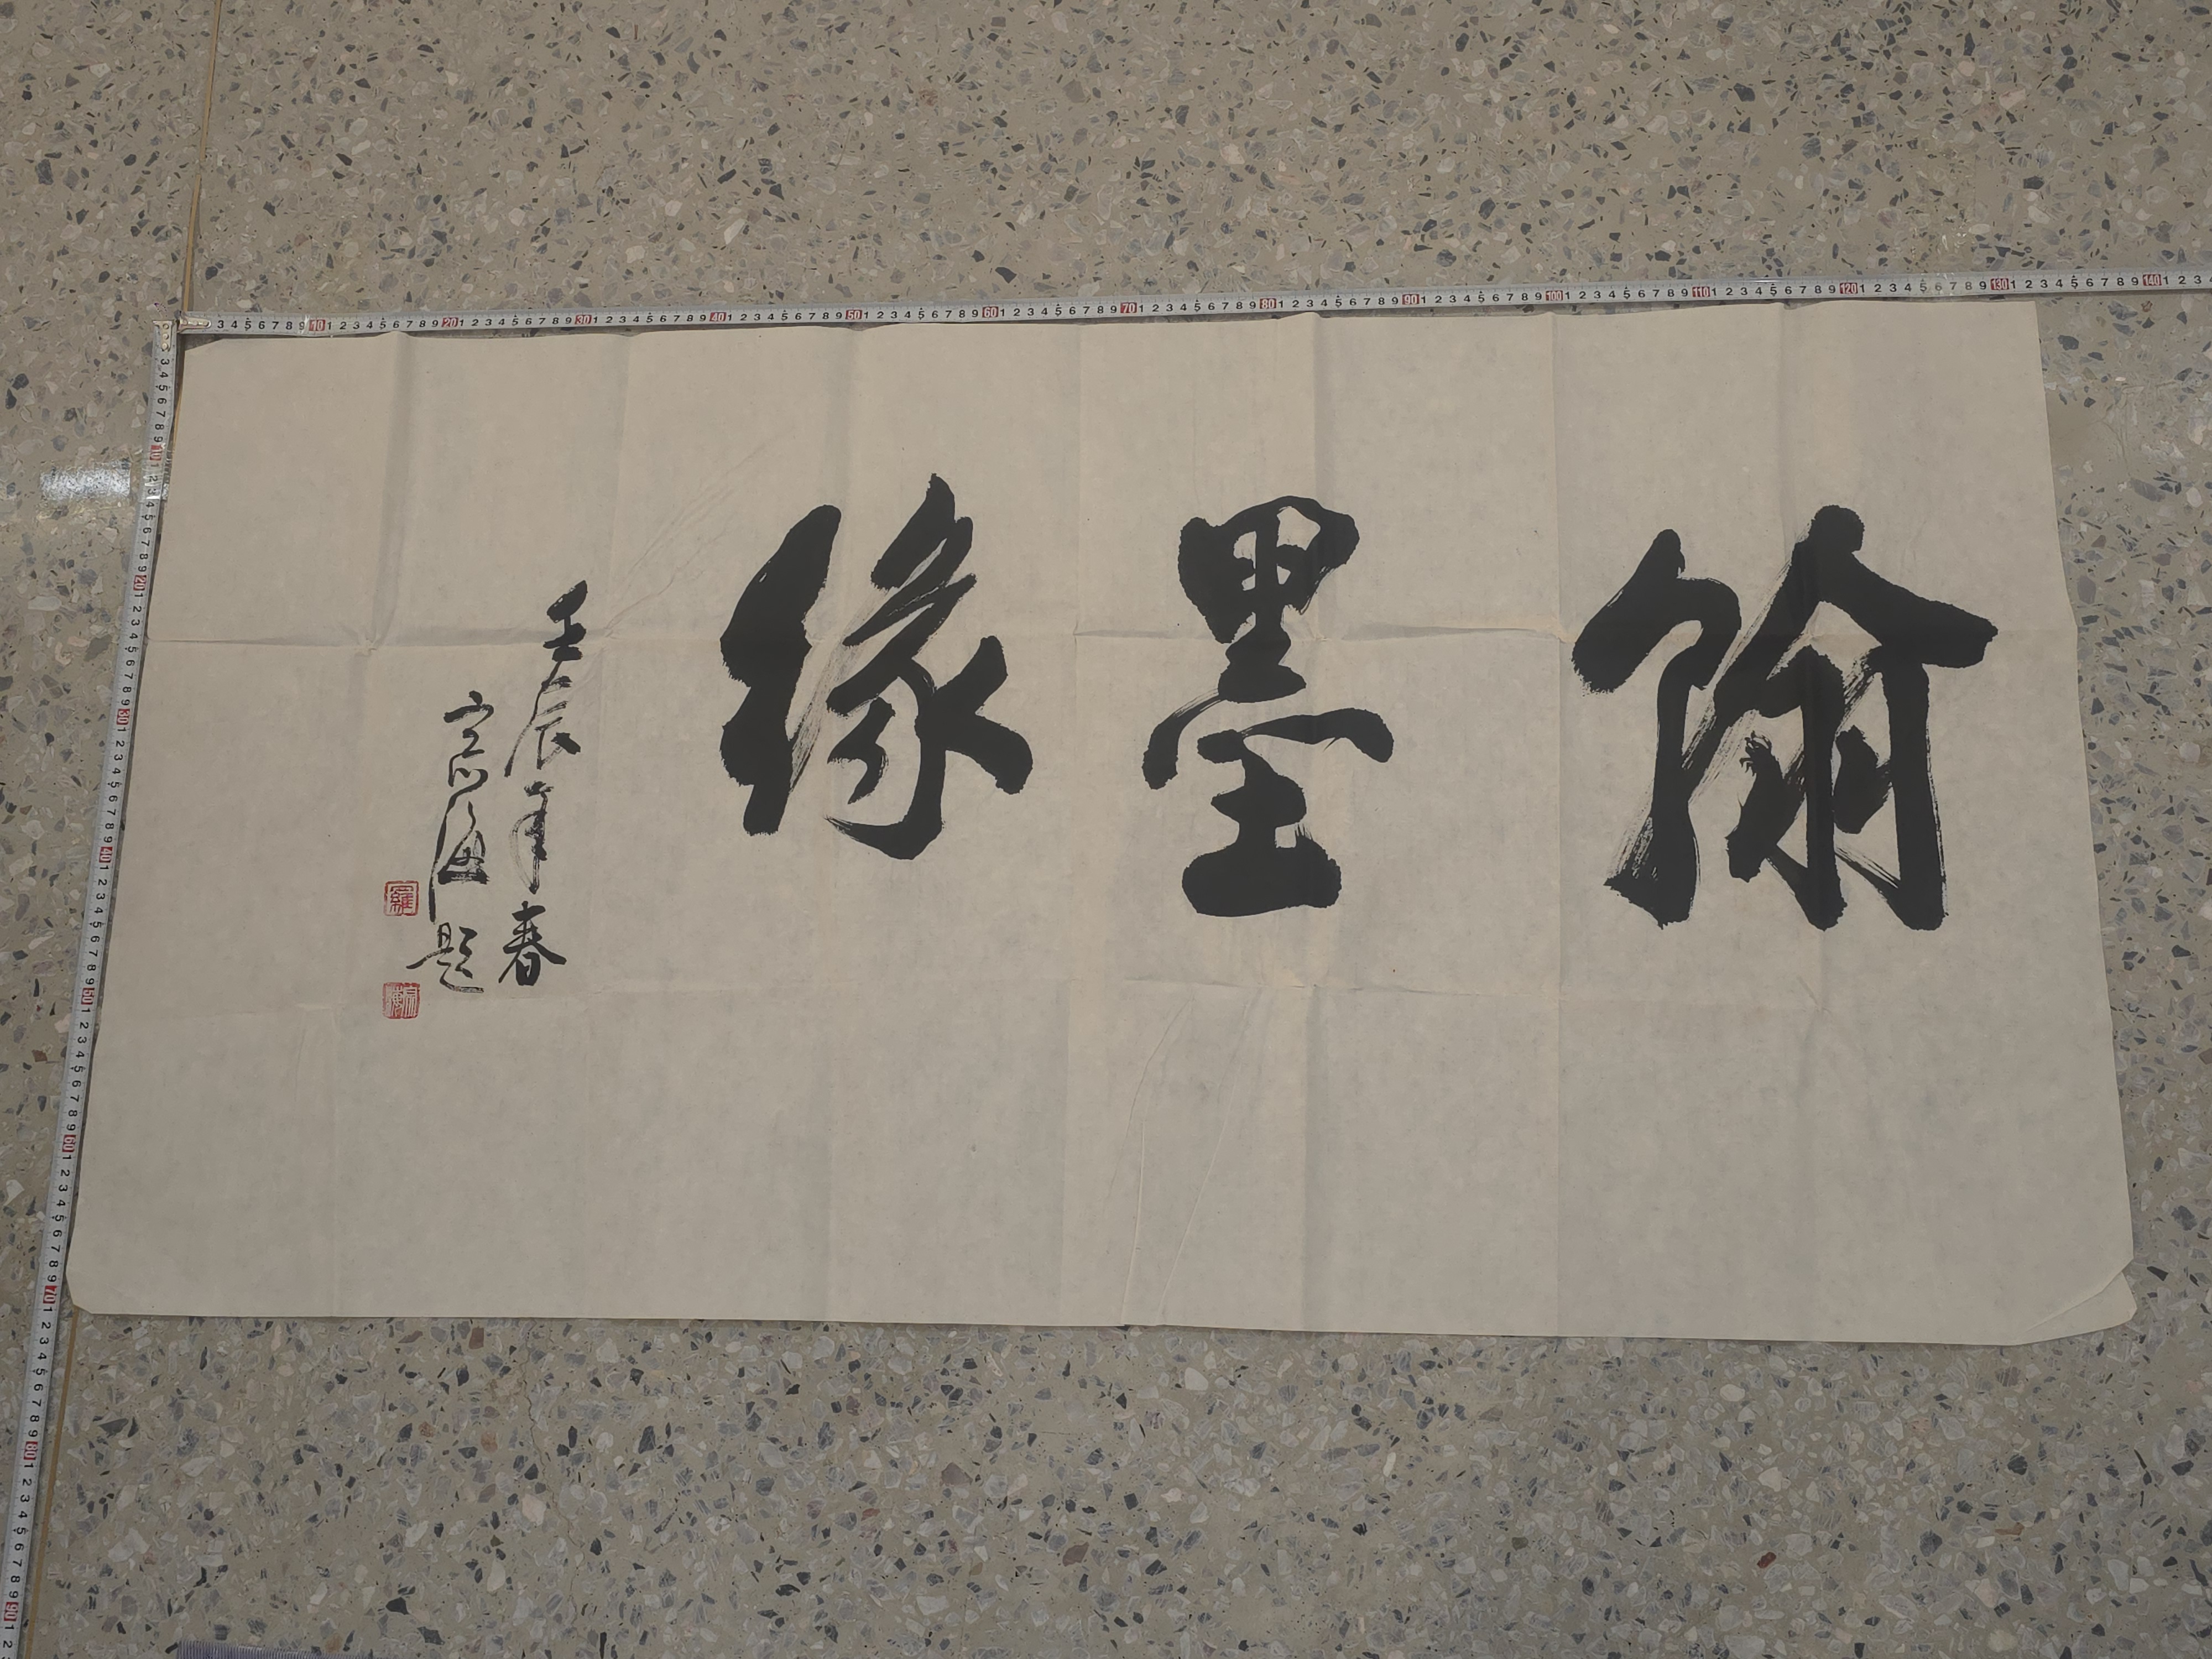 翰墨缘
壬辰年春
宗海题
羅